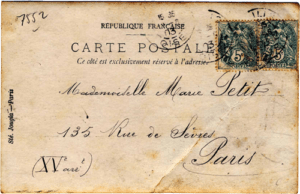 7552
RÉPUBLIQUE FRANÇAISE
CARTE POSTALE
Ce côté est exclusivement réservé à l'adresse.
Mademoiselle Marie Petit
135 Rue de Sèvres
Paris
(XV arr)
Sté. Jougla - Paris
5
5